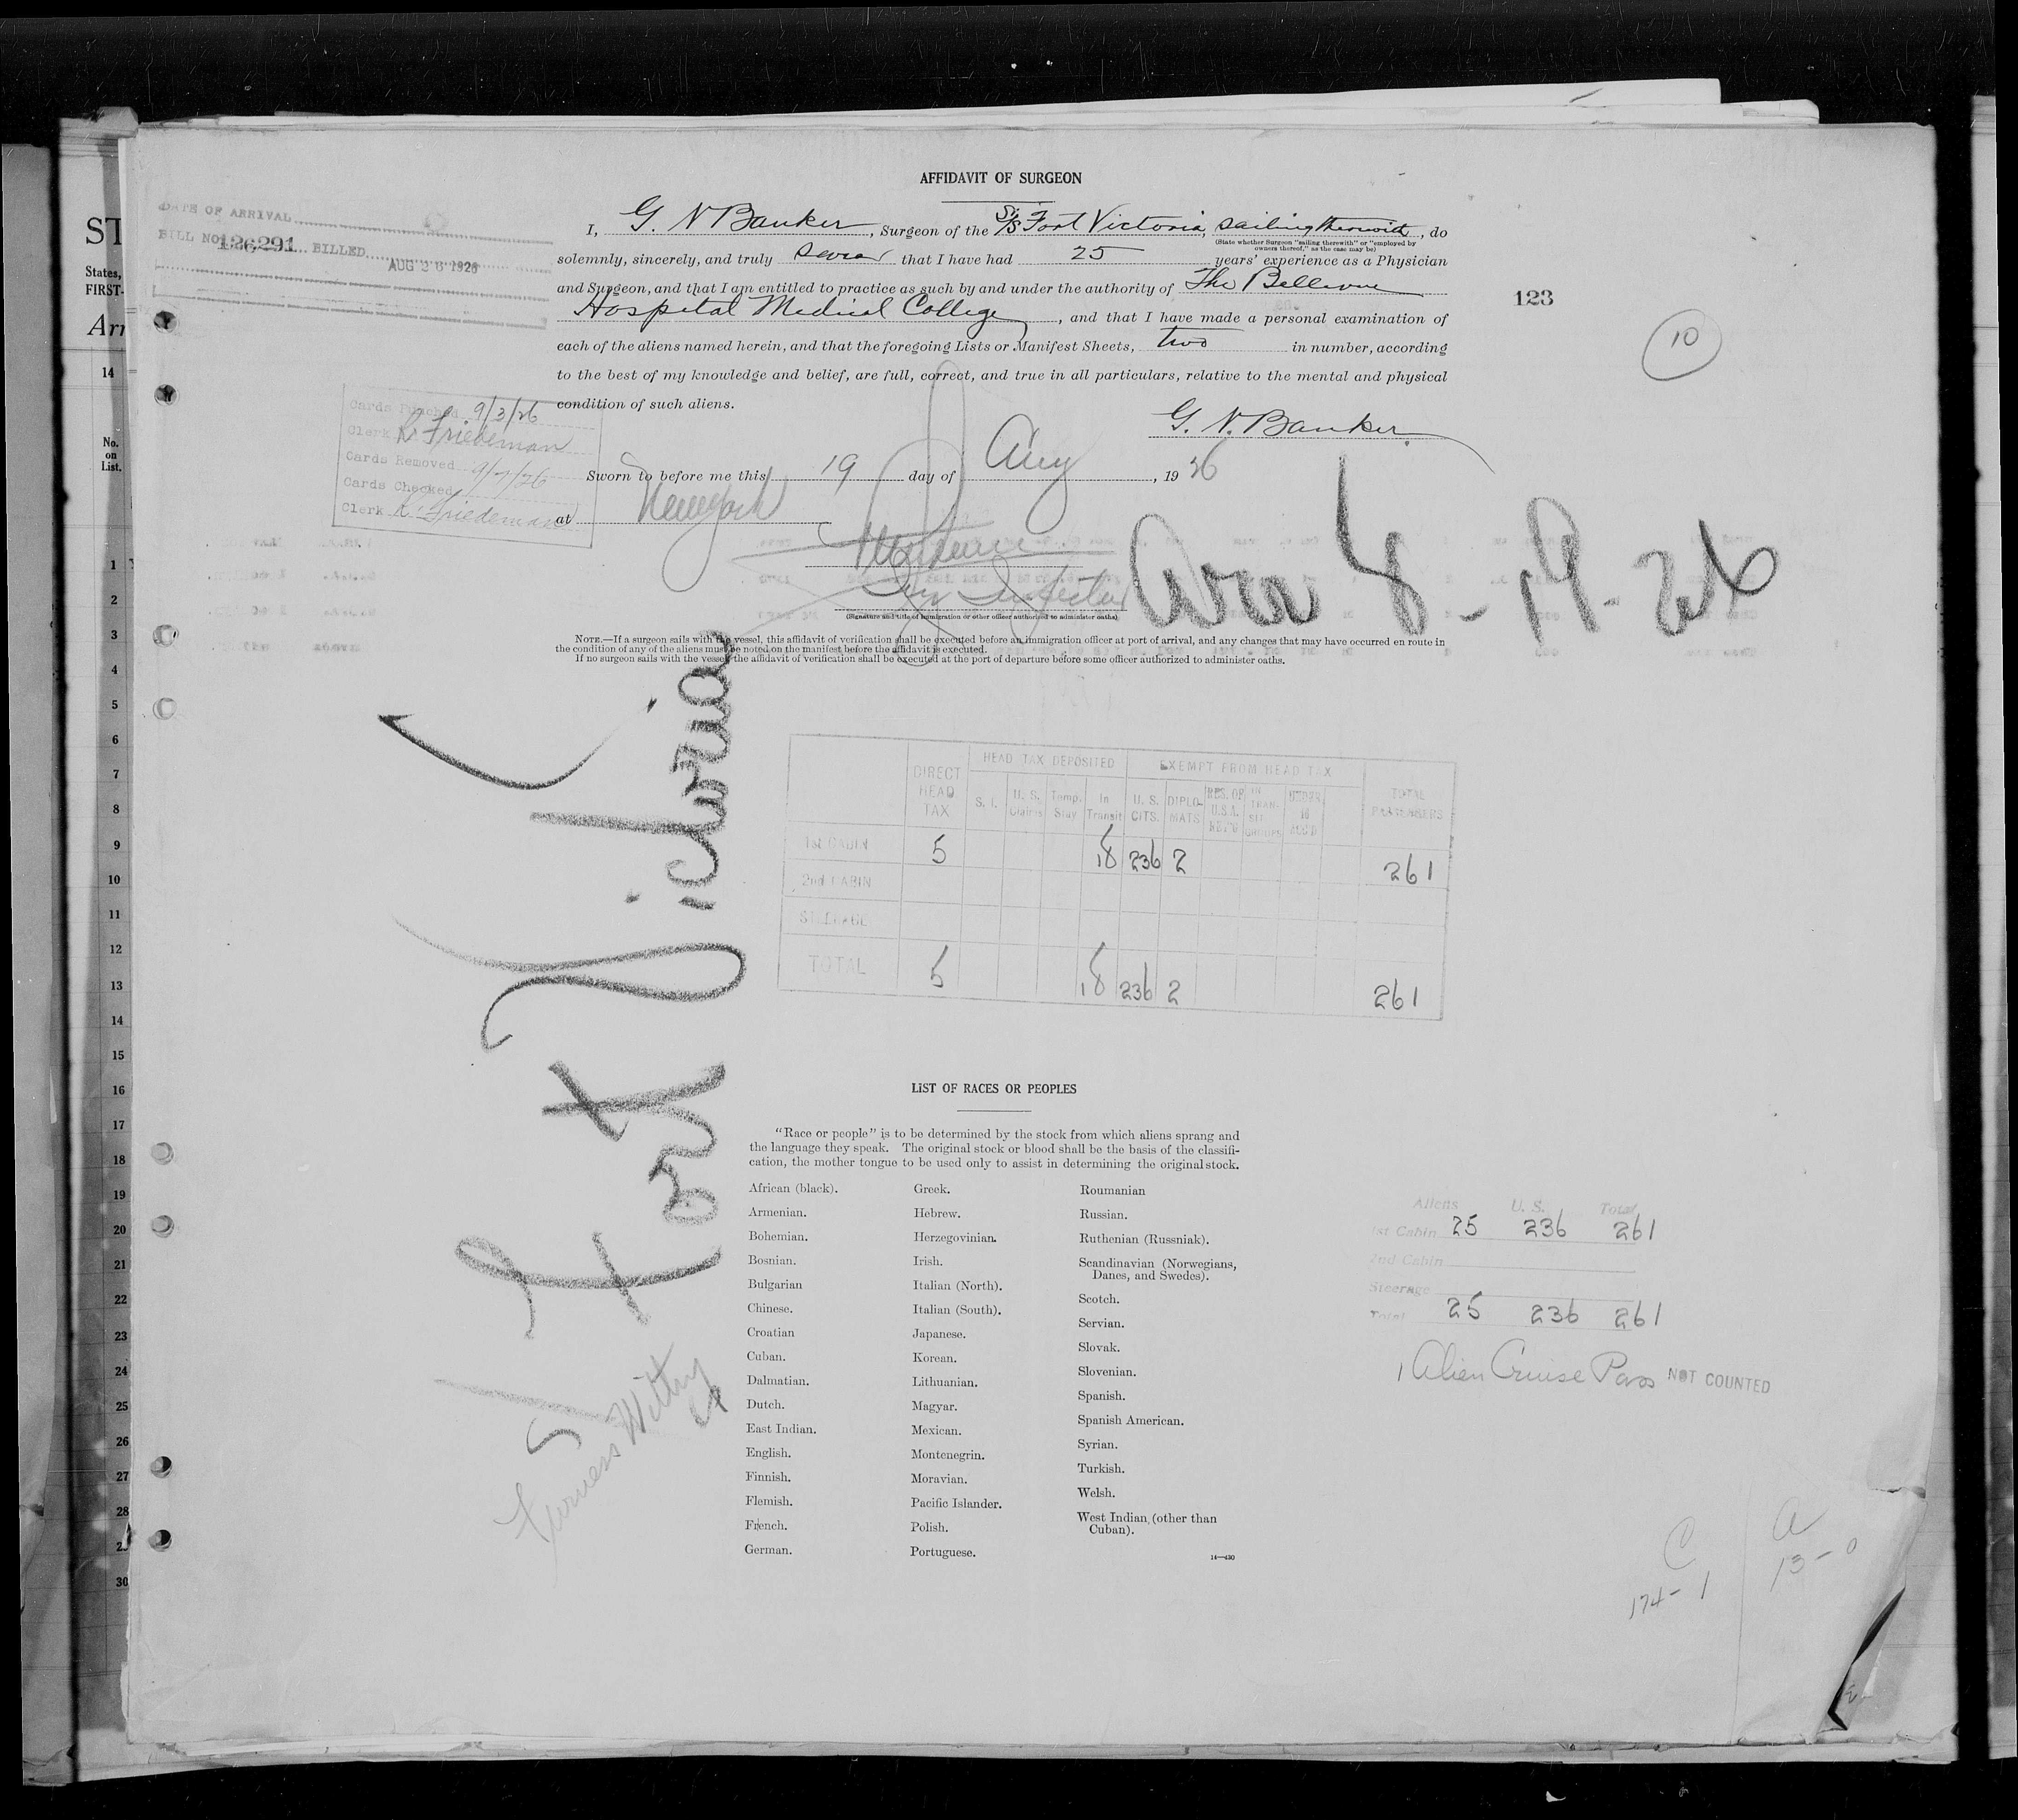 AFFIDAVIT OF SURGEON
DATE OF ARRIVAL
BILL NO. 126291 BILLED
AUG 26 1926
I, G. N Banker, Surgeon of the S/S Fort Victoria, sailing therewith, do
(State whether Surgeon "sailing therewith" or "employed by
owners thereof," as the case may be)
solemnly, sincerely, and truly swear that I have had 25 years' experience as a Physician
and Surgeon, and that I am entitled to practice as such by and under the authority of The Bellevue
Hospital Medical College, and that I have made a personal examination of
each of the aliens named herein, and that the foregoing Lists or Manifest Sheets, two in number, according
to the best of my knowledge and belief, are full, correct, and true in all particulars, relative to the mental and physical
condition of such aliens.
123
10
G. N. Banker
Cards Punched 9/3/26
Clerk R. Friedeman
Cards Removed 9/7/26
Cards Checked
Clerk R. Friedeman
Sworn to before me this 19 day of Aug, 1926
at New York
Inspector
(Signature and title of immigration or other officer authorized to administer oaths)
8-19-26
NOTE.—If a surgeon sails with the vessel, this affidavit of verification shall be executed before an immigration officer at port of arrival, and any changes that may have occurred en route in
the condition of any of the aliens must be noted on the manifest before the affidavit is executed.
If no surgeon sails with the vessel the affidavit of verification shall be executed at the port of departure before some officer authorized to administer oaths.
Fort Victoria
Furness Withy
DIRECT HEAD TAX
HEAD TAX DEPOSITED
EXEMPT FROM HEAD TAX
TOTAL PASSENGERS
S. I.
U. S. Claims
Temp. Stay
In Transit
U. S. CITS.
DIPLO-MATS
RES. OF U.S.A. RET'G
IN TRAN-SIT
UNDER 16 ACC'D
1st CABIN 5 18 236 2 261
2nd CABIN
STEERAGE
TOTAL 5 18 236 2 261
LIST OF RACES OR PEOPLES
"Race or people" is to be determined by the stock from which aliens sprang and
the language they speak. The original stock or blood shall be the basis of the classifi-
cation, the mother tongue to be used only to assist in determining the original stock.
African (black).
Armenian.
Bohemian.
Bosnian.
Bulgarian
Chinese.
Croatian
Cuban.
Dalmatian.
Dutch.
East Indian.
English.
Finnish.
Flemish.
French.
German.
Greek.
Hebrew.
Herzegovinian.
Irish.
Italian (North).
Italian (South).
Japanese.
Korean.
Lithuanian.
Magyar.
Mexican.
Montenegrin.
Moravian.
Pacific Islander.
Polish.
Portuguese.
Roumanian
Russian.
Ruthenian (Russniak).
Scandinavian (Norwegians,
Danes, and Swedes).
Scotch.
Servian.
Slovak.
Slovenian.
Spanish.
Spanish American.
Syrian.
Turkish.
Welsh.
West Indian (other than
Cuban).
14—430
Aliens U. S. Total
1st Cabin 25 236 261
2nd Cabin
Steerage
Total 25 236 261
1 Alien Cruise Pass NOT COUNTED
C
174-1
a
13-0
ST
States,
FIRST-
Arr
14
No.
on
List.
1
2
3
4
5
6
7
8
9
10
11
12
13
14
15
16
17
18
19
20
21
22
23
24
25
26
27
28
30